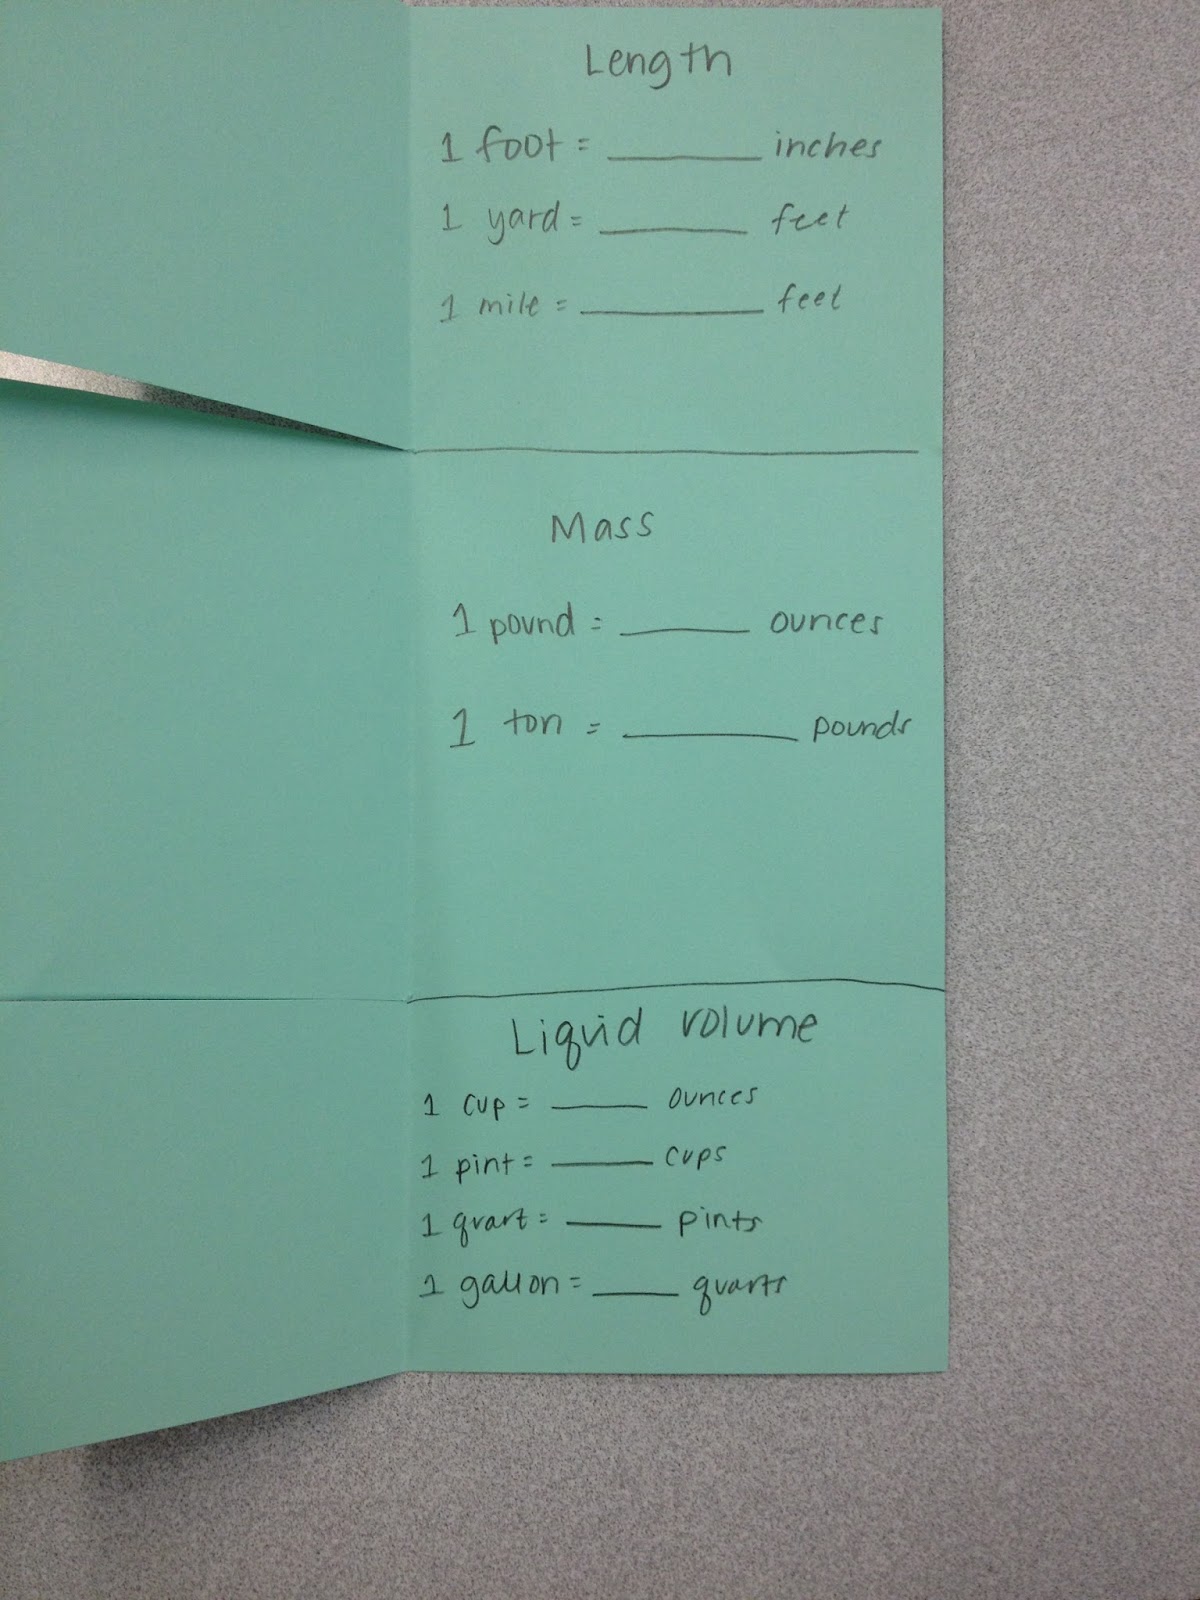 Length
1 foot = ______ inches
1 yard = ______ feet
1 mile = ______ feet
Mass
1 pound = ______ ounces
1 ton = ______ pounds
Liquid volume
1 cup = ______ ounces
1 pint = ______ cups
1 quart = ______ pints
1 gallon = ______ quarts